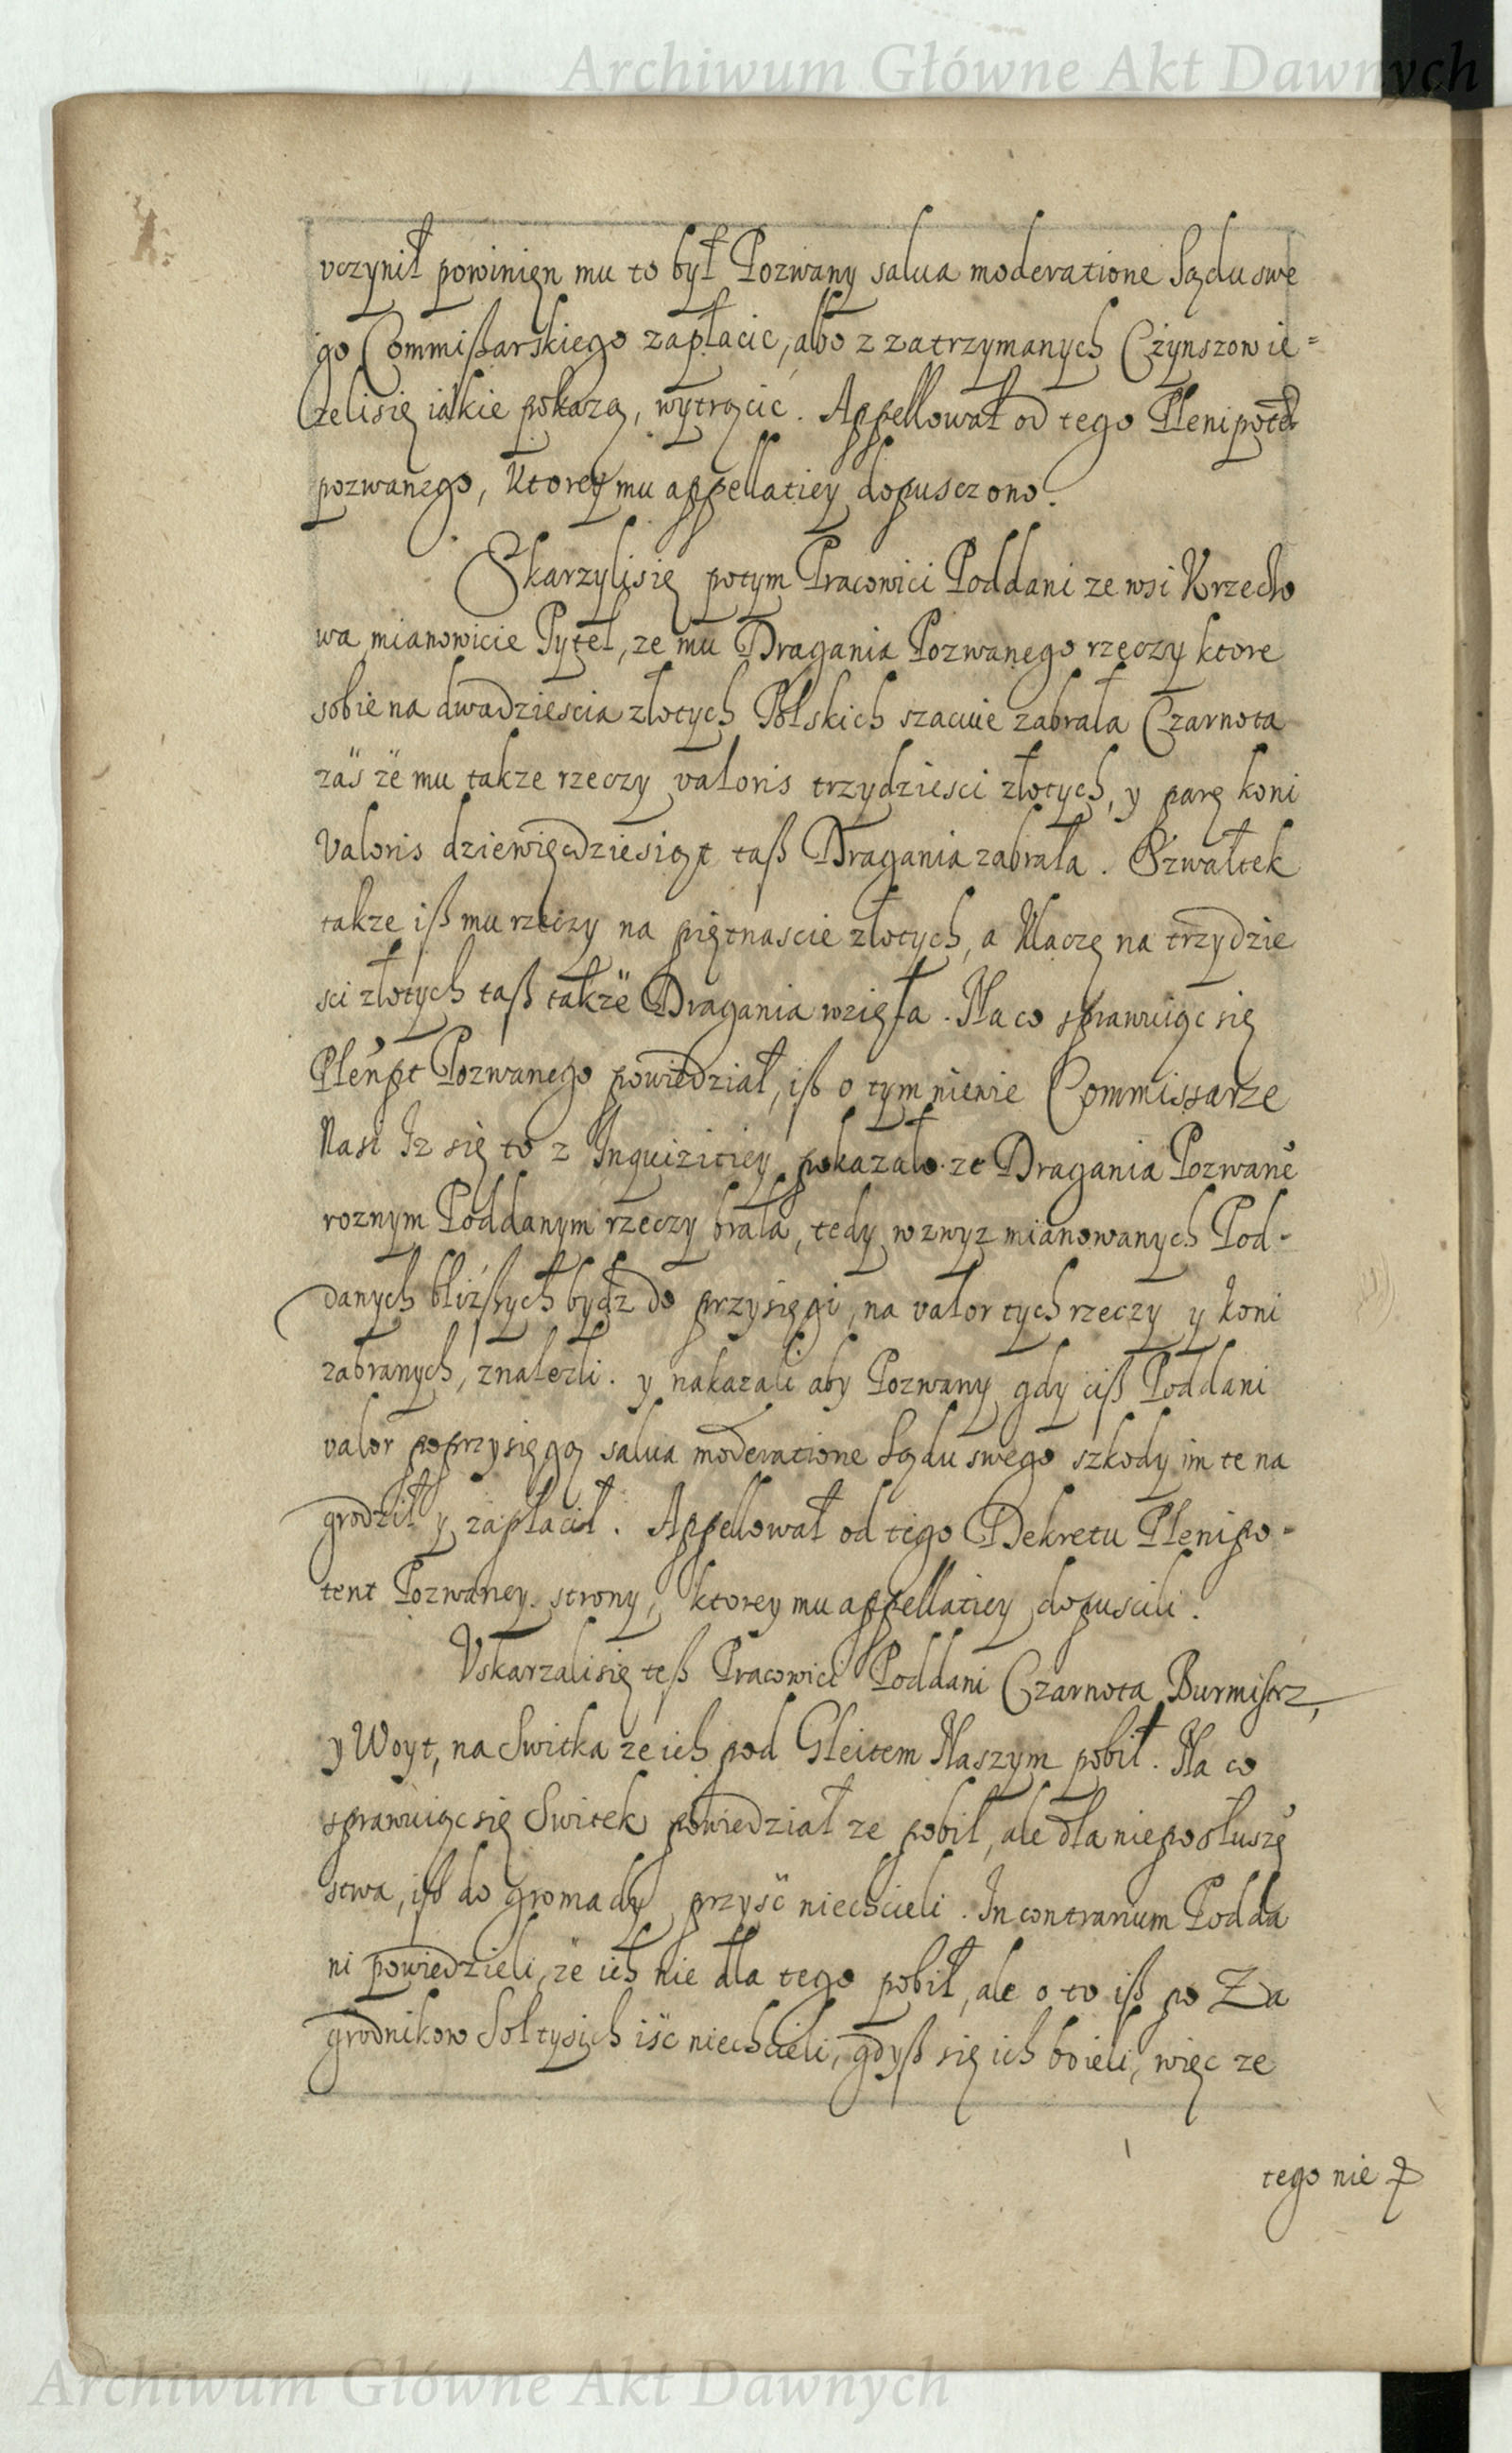 Archiwum Główne Akt Dawnych
vczynił powinięn mu to był Pozwany salua moderatione Sądu swe
go Commißarskiego zapłacic, abo z zatrzymanych Czynszow ie=
zeli się iakie pokazą, wytrącic. Appellował od tego Plenipotēt
pozwanego, Ktorey mu appellatiey dopusczono.
Skarzyli się potym Pracowici Poddani ze wsi Krzecło
wa mianowicie Pytel, ze mu Dragania Pozwanego rzeczy ktore
sobie na dwadziescia złotych Polskich szacuie zabrała Czarnota
zäs zë mu takze rzeczy valoris trzydziesci złotych, y parę koni
Valoris dziewięcdziesiąt taß Dragania zabrała. Gzwałtek
takze iß mu rzeczy na piętnascie złotych, a Klaczę na trzydzie
sci złotych taß takzë Dragania wzięła. Na co sprawuiąc się
Plenpt Pozwanego powiedział, iß o tym niewie Commissarze
Nasi Iz się to z Inquizitiey pokazało. ze Dragania Pozwane͛
roznym Poddanym rzeczy brała, tedy wzwyz mianowanych Pod-
danych bliźßych bydz do przysięgi, na valor tych rzeczy y koni
zabranych, znalezli. y nakazali aby Pozwany gdy ciß Poddani
valor poprzysięgą salua moderatione Sądu swego szkody im te na
grodził y zapłacił. Appellował od tego Dekretu Plenipo-
tent Pozwaney strony, ktorey mu appellatiey dopuscili.
Vskarzali się teß Pracowici Poddani Czarnota Burmistrz,
y Woyt, na Switka ze ich pod Gleitem Naszym pobił. Na co
sprawuiąc się Switek powiedział ze pobił, ale dla nieposłuszē
stwa, iß do gromady przysc niechcieli. In contrarium Podda
ni powiedzieli, zë ich nie dla tego pobił, ale o to iß po Za
grodnikow Soltysich isc niechcieli, gdyß się ich boieli, więc ze
tego nie
Archiwum Główne Akt Dawnych